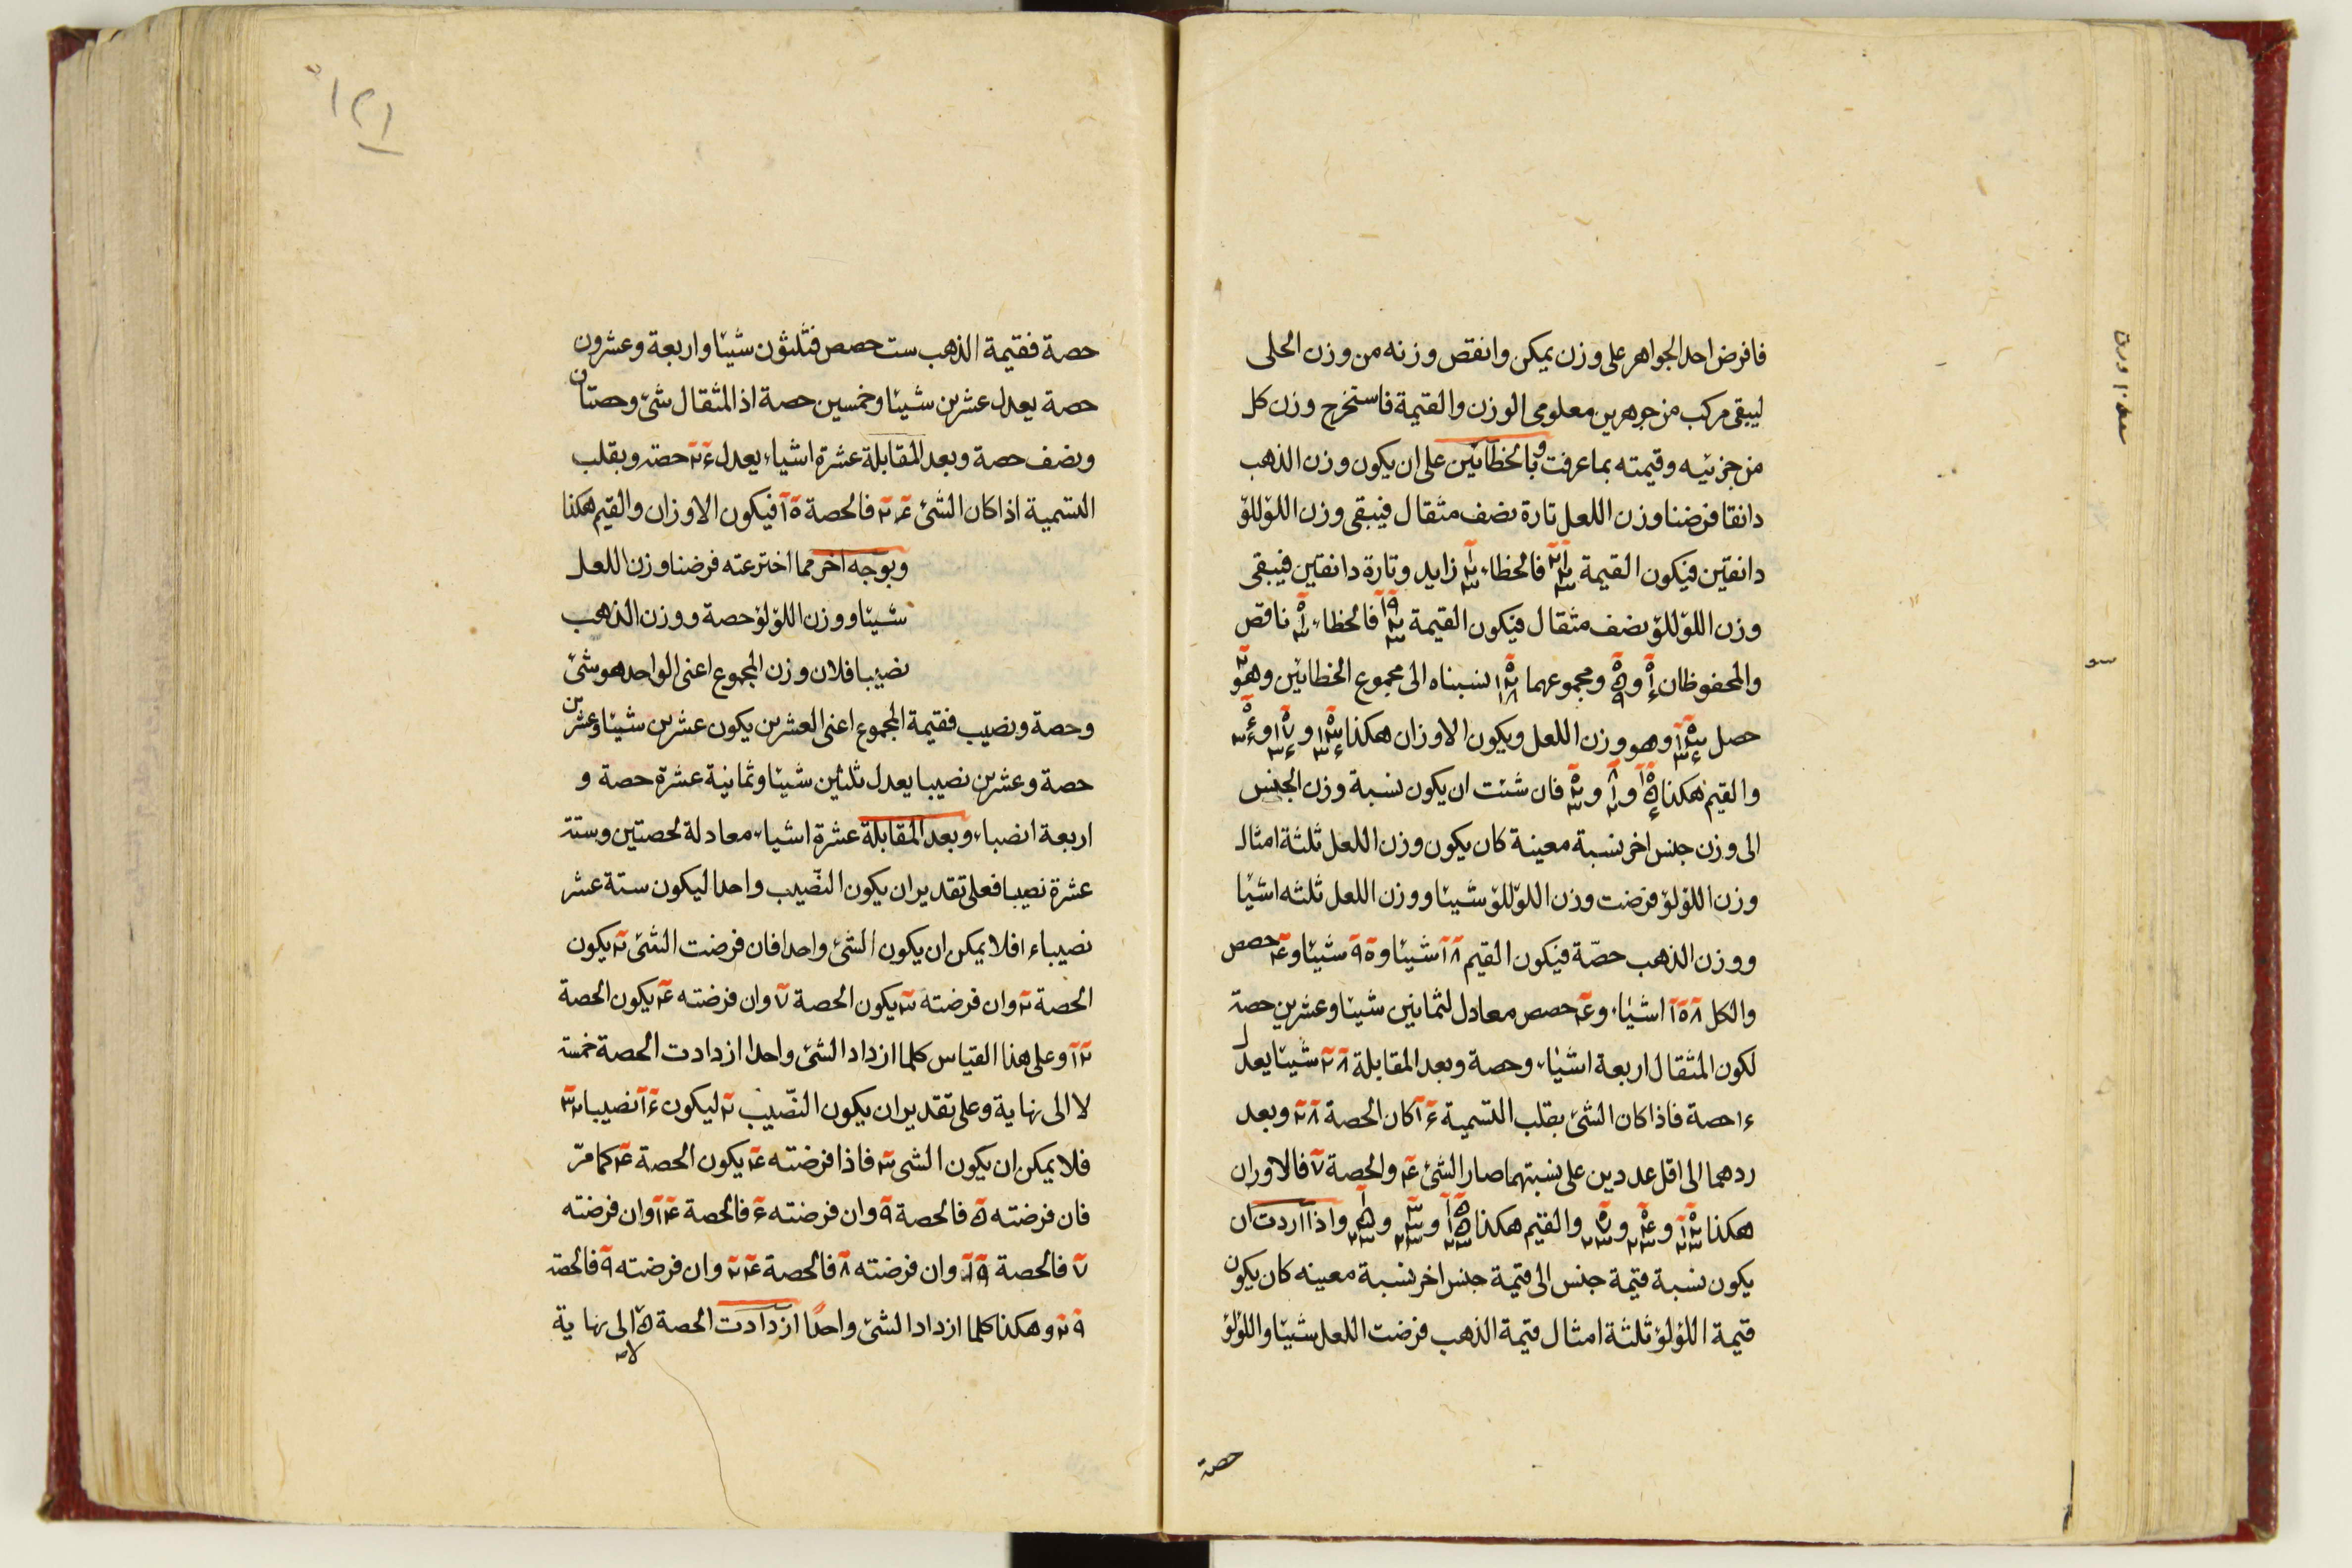 فافرض احد الجواهر على وزن يمكن وانقص وزنه من وزن الحلى
ليبقى مركب من جوهرين معلومى الوزن والقيمة فاستخرج وزن كل
من جزئيه وقيمته بما عرفت وبالخطائين على ان يكون وزن الذهب
دانقا فرضنا وزن اللعل تارة نصف مثقال فيبقى وزن اللؤلؤ
دانقين فيكون القيمة فالخطاء زايد وتارة دانقين فيبقى
وزن اللؤلؤ نصف مثقال فيكون القيمة فالخطاء ناقص
والمحفوظان و ومجموعهما نسبناه الى مجموع الخطائين وهو
حصل وهو وزن اللعل ويكون الاوزان هكذا و و
والقيم هكذا و و فان شئت ان يكون نسبة وزن الجنس
الى وزن جنس اخر نسبة معينة كان يكون وزن اللعل ثلثة امثال
وزن اللؤلؤ فرضت وزن اللؤلؤ شيئا ووزن اللعل ثلثه اشيا
ووزن الذهب حصّة فيكون القيم ١٨ شيئا و ٩٥ شيئا و ٤ حصص
والكل ١٥٨ اشياء و ٤ حصص معادل لثمانين شيئا وعشرين حصة
لكون المثقال اربعة اشياء وحصة وبعد المقابلة ٢٨ شيئا يعدل
١٦ حصة فاذا كان الشئ بقلب التسمية ١٦ كان الحصة ٢٨ وبعد
ردهما الى اقل عددين على نسبتهما صار الشئ ٤ والحصة ٧ فالاوزان
هكذا و و والقيم هكذا و و واذا اردت ان
يكون نسبة قيمة جنس الى قيمة جنس اخر نسبة معينه كان يكون
قيمة اللؤلؤ ثلثة امثال قيمة الذهب فرضت اللعل شيئا واللؤلؤ
حصة
١٢١
حصة فقيمة الذهب ست حصص فثلثون شيئا واربعة وعشرون
حصة يعدل عشرين شيئا وخمسين حصة اذ المثقال شئ وحصتان
ونصف حصة وبعد المقابلة عشرة اشياء يعدل ٢٦ حصة وبقلب
التسمية اذا كان الشئ فالحصة فيكون الاوزان والقيم هكذا
وبوجه اخر مما اخترعته فرضنا وزن اللعل
شيئا ووزن اللؤلؤ حصة ووزن الذهب
نصيبا فلان وزن المجموع اعنى الواحد هو شئ
وحصة ونصيب فقيمة المجموع اعنى العشرين يكون عشرين شيئا وعشرين
حصة وعشرين نصيبا يعدل ثلثين شيئا وثمانية عشرة حصة و
اربعة انصباء وبعد المقابلة عشرة اشياء معادلة لحصتين وستة
عشرة نصيبا فعلى تقدير ان يكون النصّيب واحدا ليكون ستة عشر
نصيباء فلا يمكن ان يكون الشئ واحدا فان فرضت الشئ ٢ يكون
الحصة ٢ وان فرضته ٣ يكون الحصة ٧ وان فرضته ٤ يكون الحصة
١٢ وعلى هذا القياس كلما ازداد الشئ واحدا ازدادت الحصة خمسة
لا الى نهاية وعلى تقدير ان يكون النصّيب ٢ ليكون ١٦ نصيبا ٣٢
فلا يمكن ان يكون الشى ٣ فاذا فرضته ٤ يكون الحصة ٤ كما مرّ
فان فرضته ٥ فالحصة ٩ وان فرضته ٦ فالحصة ١٤ وان فرضته
٧ فالحصة ١٩ وان فرضته ٨ فالحصة ٢٤ وان فرضته ٩ فالحصة
٢٩ وهكذا كلما ازداد الشئ واحدًا ازدادت الحصة ٥ الى نهاية
لا